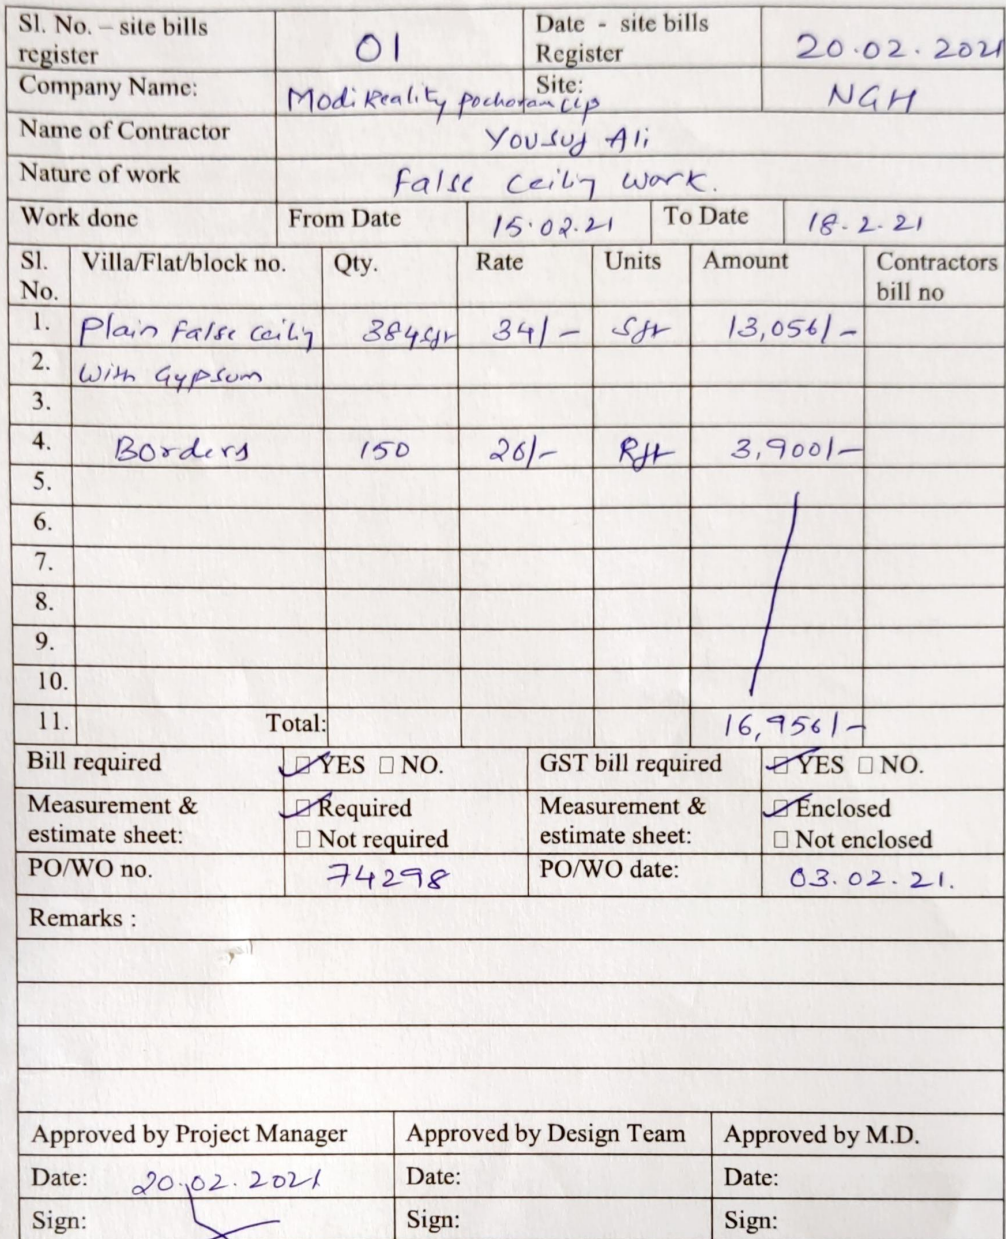 Sl. No. – site bills register 01 Date - site bills Register 20.02.2021
Company Name: Modi Reality Pocharam LLP Site: NGH
Name of Contractor Yousuf Ali
Nature of work False Ceiling work.
Work done From Date 15.02.21 To Date 18.2.21
Sl. No. Villa/Flat/block no. Qty. Rate Units Amount Contractors bill no
1. Plain False Ceiling 384sft 34/- Sft 13,056/-
2. With Gypsum
3.
4. Borders 150 26/- Rft 3,900/-
5.
6.
7.
8.
9.
10.
11. Total: 16,956/-
Bill required ☑ YES ☐ NO. GST bill required ☑ YES ☐ NO.
Measurement & estimate sheet: ☑ Required ☐ Not required Measurement & estimate sheet: ☑ Enclosed ☐ Not enclosed
PO/WO no. 74298 PO/WO date: 03.02.21.
Remarks :
Approved by Project Manager Approved by Design Team Approved by M.D.
Date: 20.02.2021 Date: Date:
Sign: Sign: Sign: